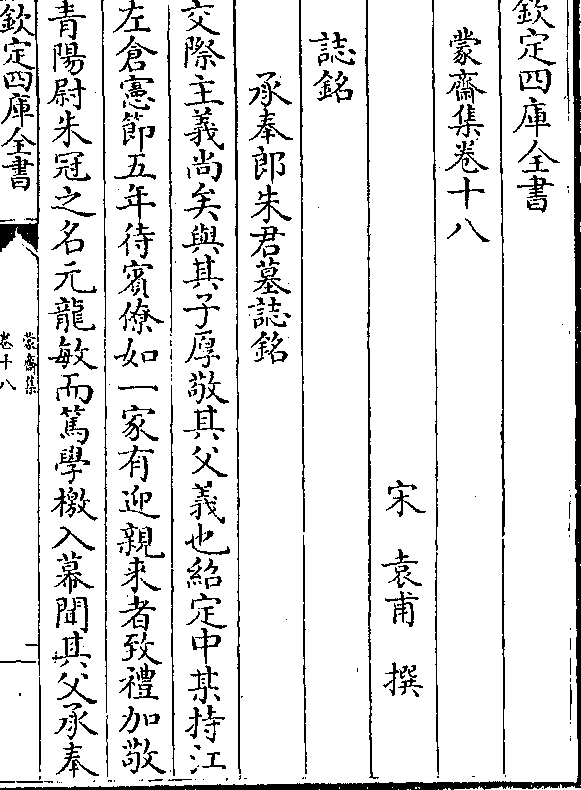 欽定四庫全書
蒙齋集卷十八
宋 袁甫 撰
誌銘
承奉郎朱君墓誌銘
交際主義尚矣與其子厚敬其父義也紹定中某持江
左倉憲節五年待賓僚如一家有迎親来者致禮加敬
青陽尉朱冠之名元龍敏而篤學檄入幕聞其父承奉
欽定四庫全書
蒙齋集
卷十八